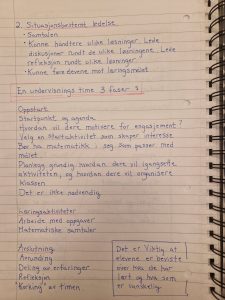 2. Situasjonsbestemt ledelse
• Samtalen
• Kunne håndtere ulike løsninger. Lede
diskusjoner rundt de ulike løsningene. Lede
refleksjon rundt ulike løsninger
• Kunne føre elevene mot læringsmålet
En undervisnings time 3 faser:
Oppstart
Startpunkt og agenda
Hvordan vil dere motivere for engasjement?
Velg en startaktivitet som skaper interesse
Bør ha matematikk i seg som passer med
målet
Planlegg grundig hvordan dere vil igangsette
aktiviteten, og hvordan dere vil organisere
klassen
Det er ikke nødvendig
Læringsaktiviteter
Arbeide med oppgaver
Matematiske samtaler
Avslutning
Avrunding
Deling av erfaringer
Refleksjon
av timen
Det er viktig at
elevene er beviste
over hva de har
lært og hva som
er vanskelig